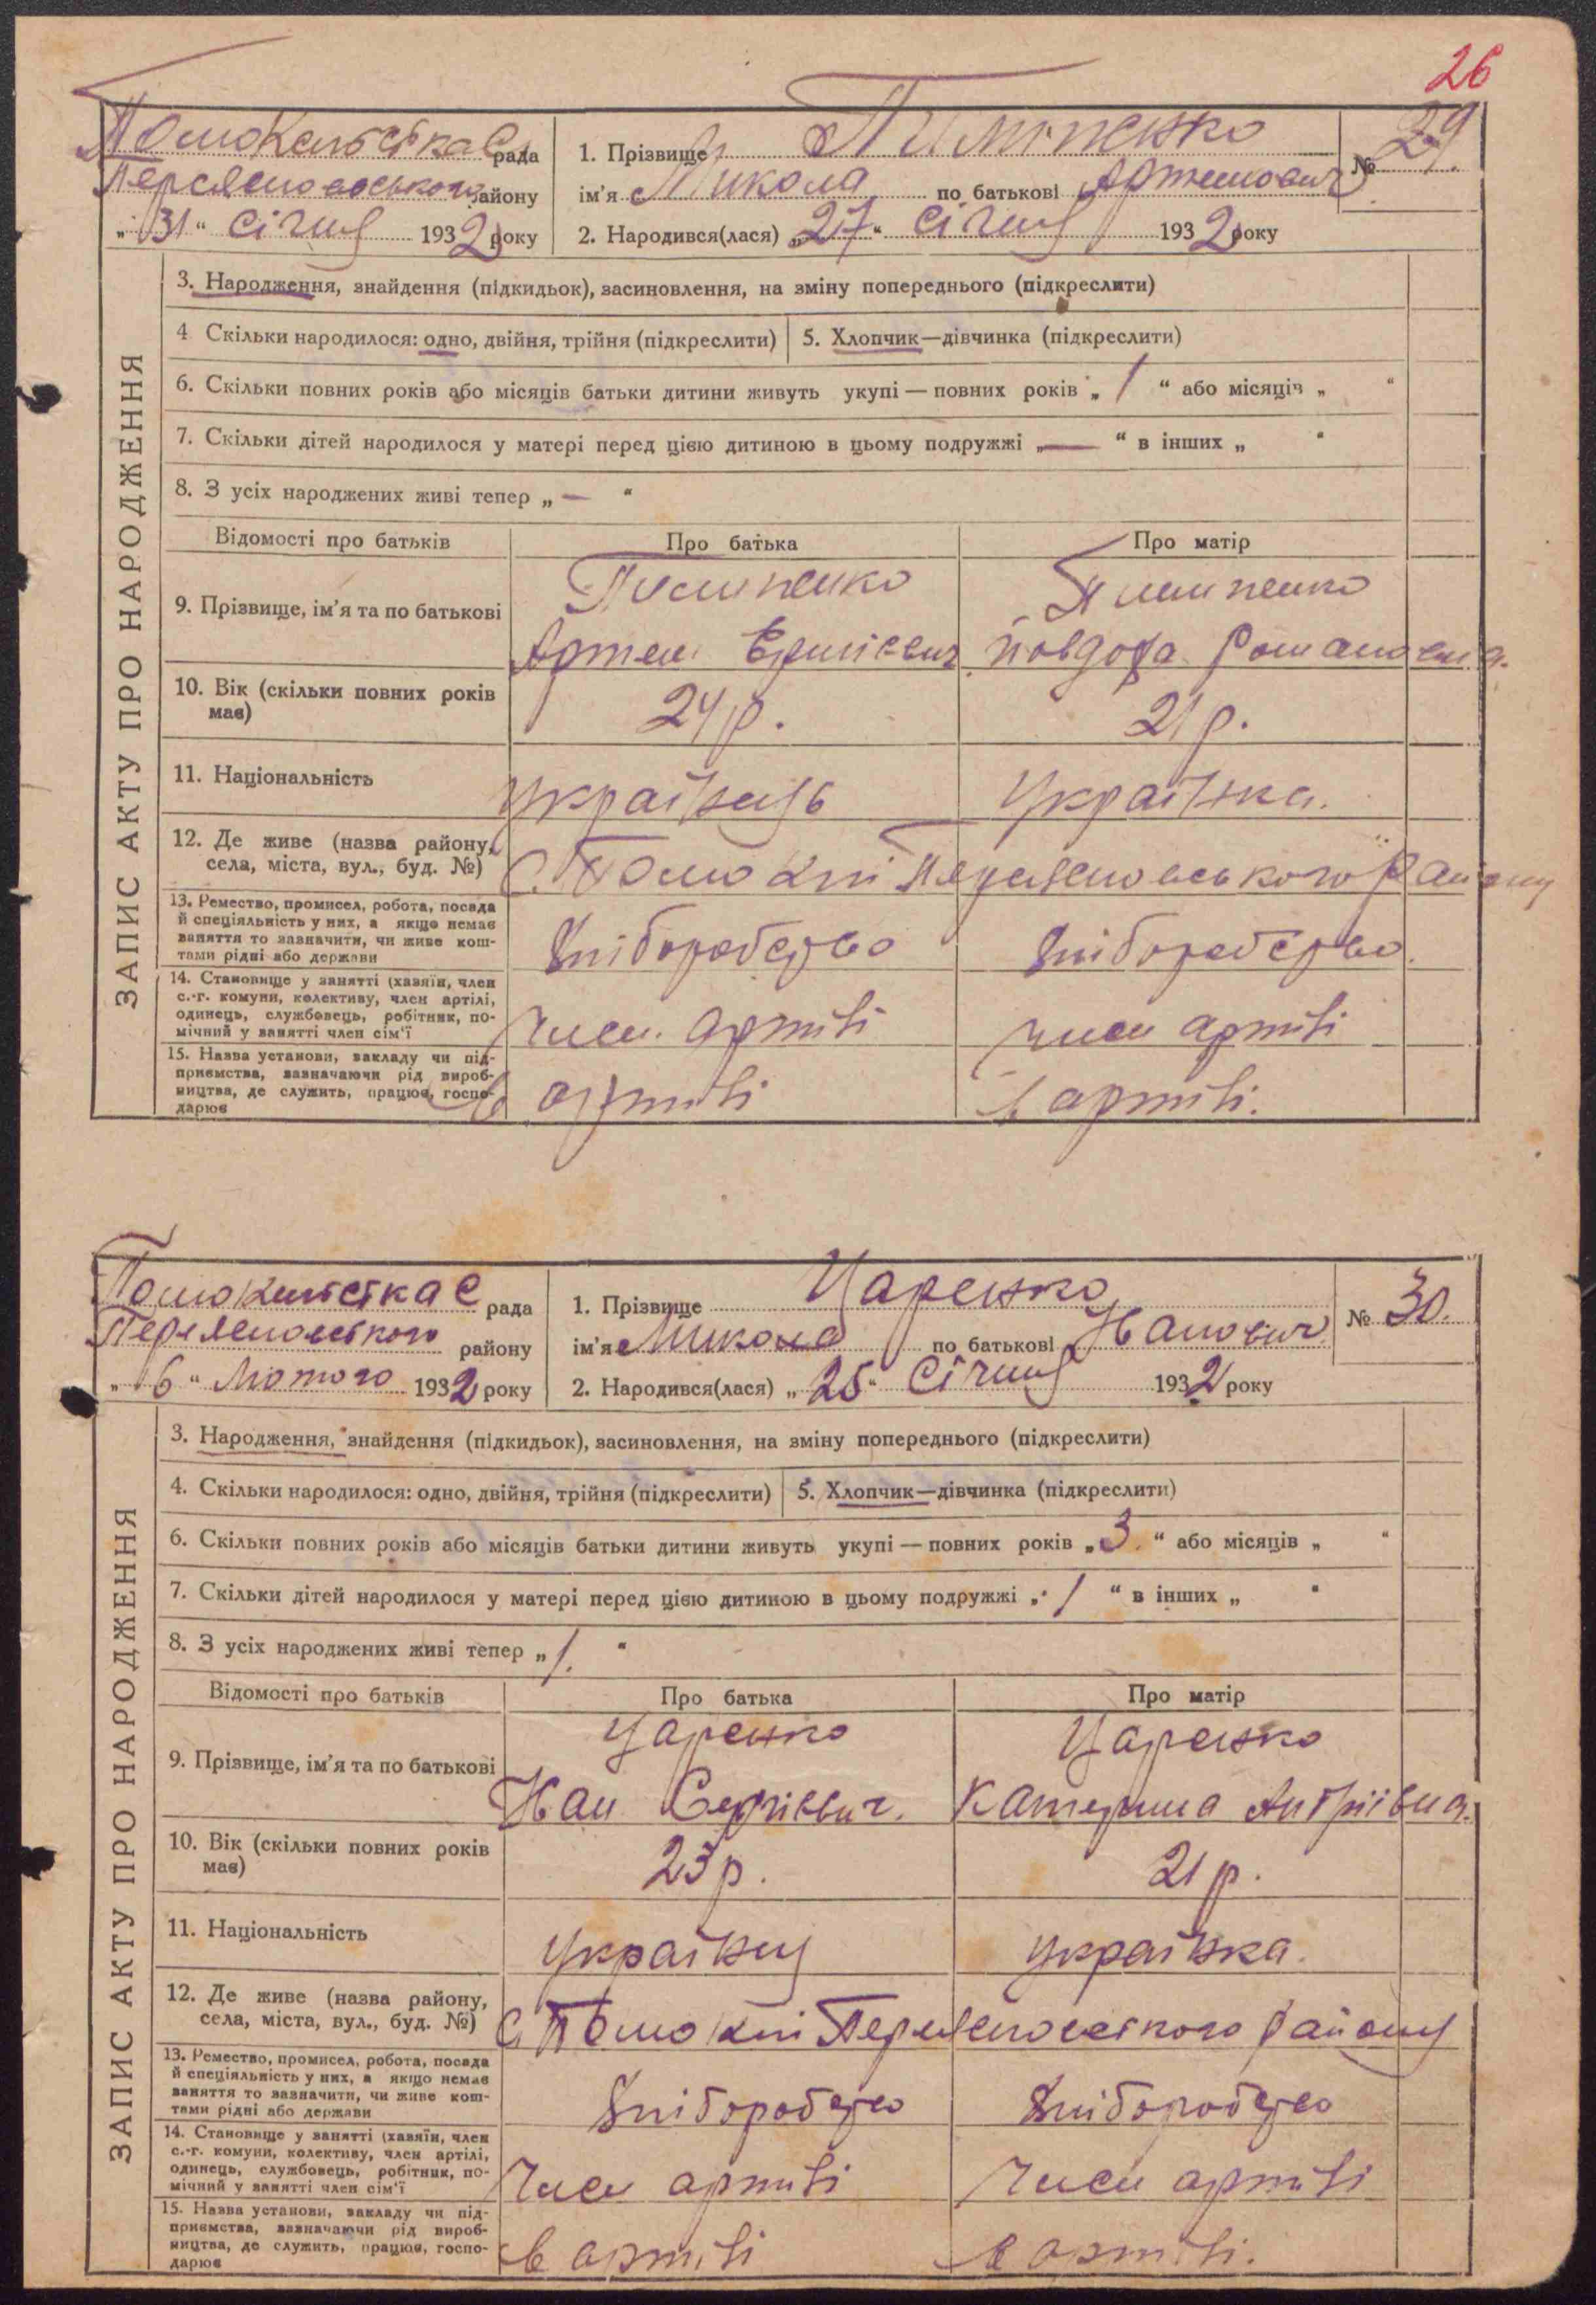 26
Помоклістка С рада
Переяславського району
„31“ січня 1932 року
1. Прізвище Пилипенко
№ 29.
ім'я Микола по батькові Артемович
2. Народився(лася) „27“ січня 1932 року
ЗАПИС АКТУ ПРО НАРОДЖЕННЯ
3. Народження, знайдення (підкидьок), засиновлення, на зміну попереднього (підкреслити)
4 Скільки народилося: одно, двійня, трійня (підкреслити) 5. Хлопчик—дівчинка (підкреслити)
6. Скільки повних років або місяців батьки дитини живуть укупі — повних років „ 1 “ або місяців „ “
7. Скільки дітей народилося у матері перед цією дитиною в цьому подружжі „ — “ в інших „ “
8. З усіх народжених живі тепер „ — “
Відомості про батьків Про батька Про матір
9. Прізвище, ім'я та по батькові
Пилипенко Пилипенко
Артем Йовдоха Романовна.
10. Вік (скільки повних років має)
24 р. 21 р.
11. Національність
українець українка.
12. Де живе (назва району, села, міста, вул., буд. №)
с. Помоклі Переяславського району
13. Ремество, промисел, робота, посада й спеціяльність у них, а якщо немає заняття то зазначити, чи живе коштами рідні або держави
Хліборобство Хліборобство.
14. Становище у занятті (хазяїн, член с.-г. комуни, колективу, член артілі, одинець, службовець, робітник, помічний у занятті член сім'ї
член артілі член артілі
15. Назва установи, закладу чи підприємства, зазначаючи рід виробництва, де служить, працює, господарює
в артілі в артілі.
Помоклістка С рада
Переяславського району
„6“ Лютого 1932 року
1. Прізвище Царенко
№ 30.
ім'я Микола по батькові Іванович
2. Народився(лася) „25“ січня 1932 року
ЗАПИС АКТУ ПРО НАРОДЖЕННЯ
3. Народження, знайдення (підкидьок), засиновлення, на зміну попереднього (підкреслити)
4. Скільки народилося: одно, двійня, трійня (підкреслити) 5. Хлопчик—дівчинка (підкреслити)
6. Скільки повних років або місяців батьки дитини живуть укупі — повних років „ 3. “ або місяців „ “
7. Скільки дітей народилося у матері перед цією дитиною в цьому подружжі „ 1 “ в інших „ “
8. З усіх народжених живі тепер „ 1. “
Відомості про батьків Про батька Про матір
9. Прізвище, ім'я та по батькові
Царенко Царенко
Іван Сергієвич. Катерина Андріївна.
10. Вік (скільки повних років має)
23 р. 21 р.
11. Національність
українец українка.
12. Де живе (назва району, села, міста, вул., буд. №)
с. Помоклі Переяславського району
13. Ремество, промисел, робота, посада й спеціяльність у них, а якщо немає заняття то зазначити, чи живе коштами рідні або держави
Хліборобство Хліборобство
14. Становище у занятті (хазяїн, член с.-г. комуни, колективу, член артілі, одинець, службовець, робітник, помічний у занятті член сім'ї
член артілі член артілі
15. Назва установи, закладу чи підприємства, зазначаючи рід виробництва, де служить, працює, господарює
в артілі в артілі.